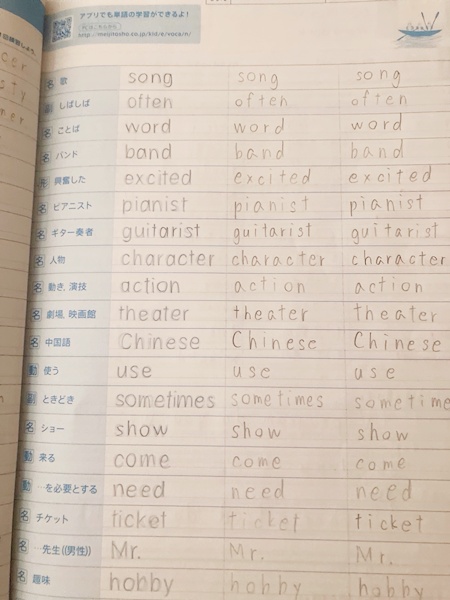 アプリでも単語の学習ができるよ!
http://meijitosho.co.jp/kid/e/voca/n/
名 歌 song song song
副 しばしば often often often
名 ことば word word word
名 バンド band band band
形 興奮した excited excited excited
名 ピアニスト pianist pianist pianist
名 ギター奏者 guitarist guitarist guitarist
名 人物 character character character
名 動き, 演技 action action action
名 劇場, 映画館 theater theater theater
名 中国語 Chinese Chinese Chinese
動 使う use use use
副 ときどき sometimes sometimes sometime
名 ショー show show show
動 来る come come come
動 …を必要とする need need need
名 チケット ticket ticket ticket
名 …先生((男性)) Mr. Mr. Mr.
名 趣味 hobby hobby hobby